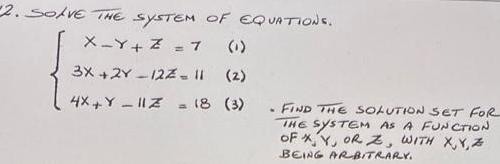 2. SOLVE THE SYSTEM OF EQUATIONS.
X - Y + Z = 7 (1)
3X + 2Y - 12Z = 11 (2)
4X + Y - 11Z = 18 (3)
• FIND THE SOLUTION SET FOR
THE SYSTEM AS A FUNCTION
OF X, Y, OR Z, WITH X, Y, Z
BEING ARBITRARY.